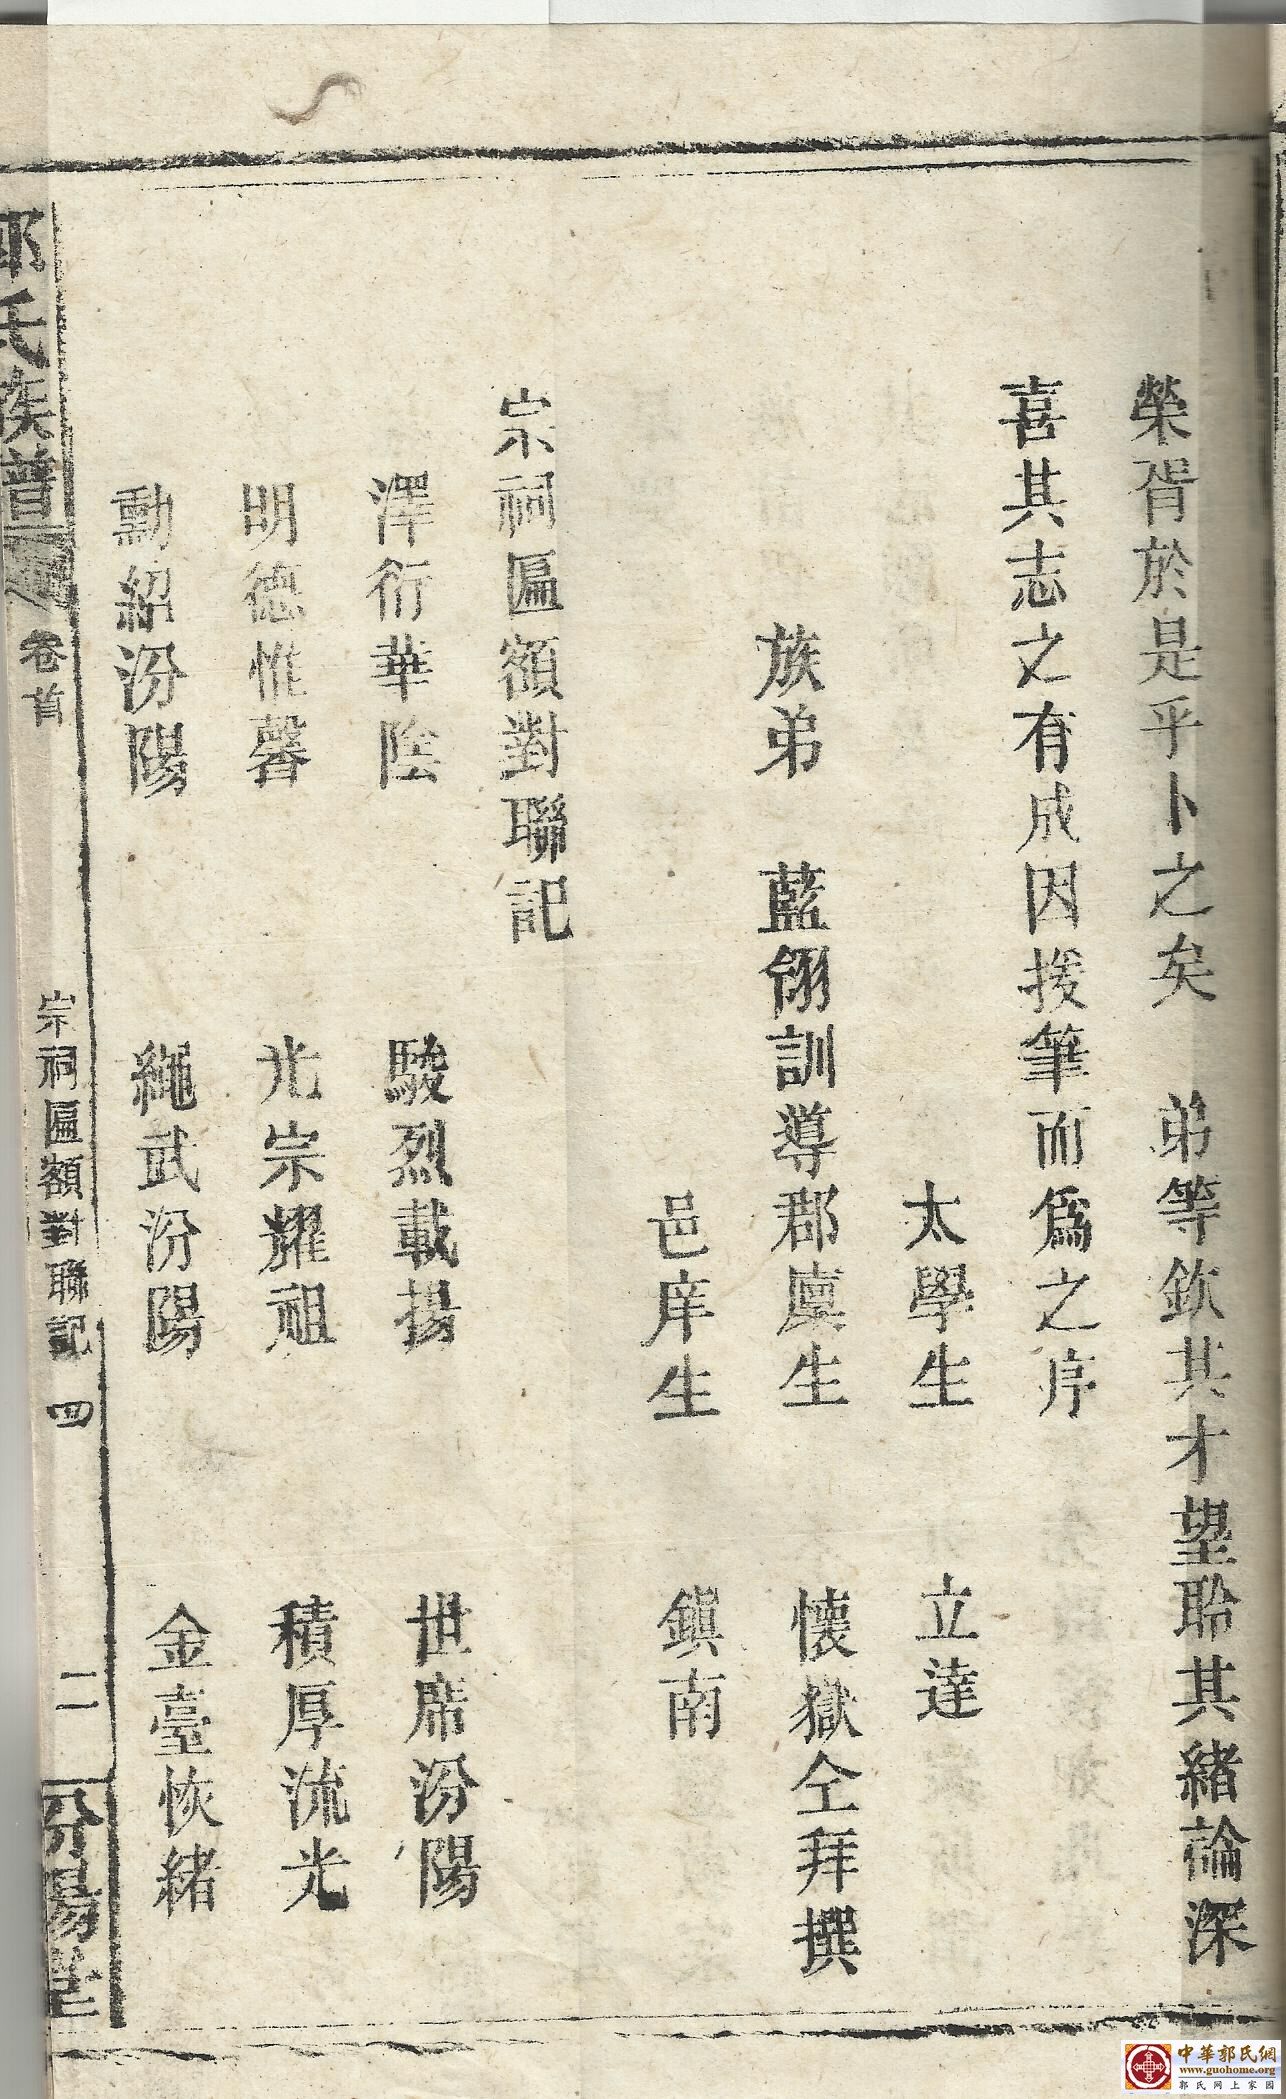 榮胥於是乎卜之矣　弟等欽其才望聆其緒論深
喜其志之有成因援筆而爲之序
太學生　立達
族弟　藍翎訓導郡廩生　懷嶽仝拜撰
邑庠生　鎮南
宗祠匾額對聯記
澤衍華陰　駿烈載揚　世席汾陽
明德惟馨　光宗耀祖　積厚流光
勳紹汾陽　繩武汾陽　金臺恢緒
郭氏族譜　卷首　宗祠匾額對聯記　四　二　汾陽堂
中華郭氏網
www.guohome.org
郭氏网上家园